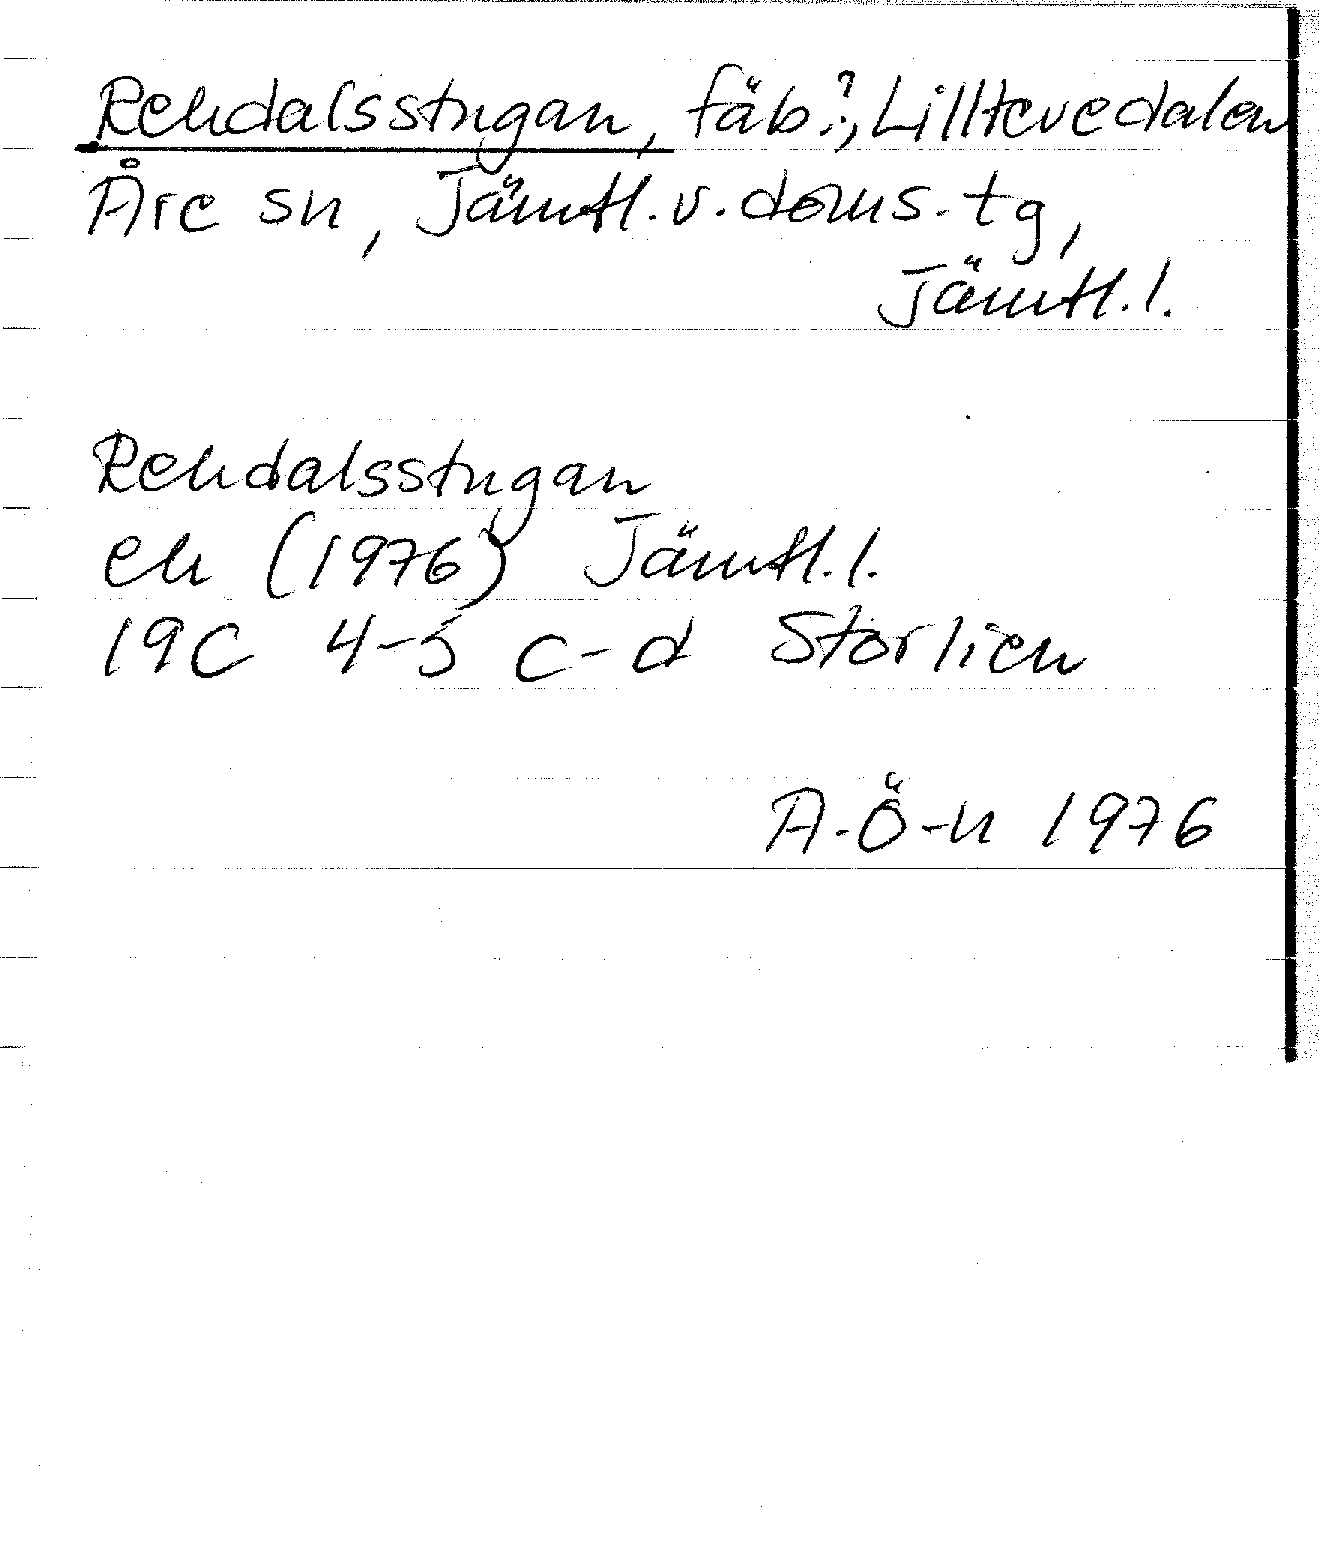 Rendalsstugan, fäb.?, Lilltevedalen
Åre sn, Jämtl. v. doms. tg,
Jämtl. l.
Rendalsstugan
ek (1976) Jämtl. l.
19C 4-5 c-d Storlien
A-Ö-n 1976